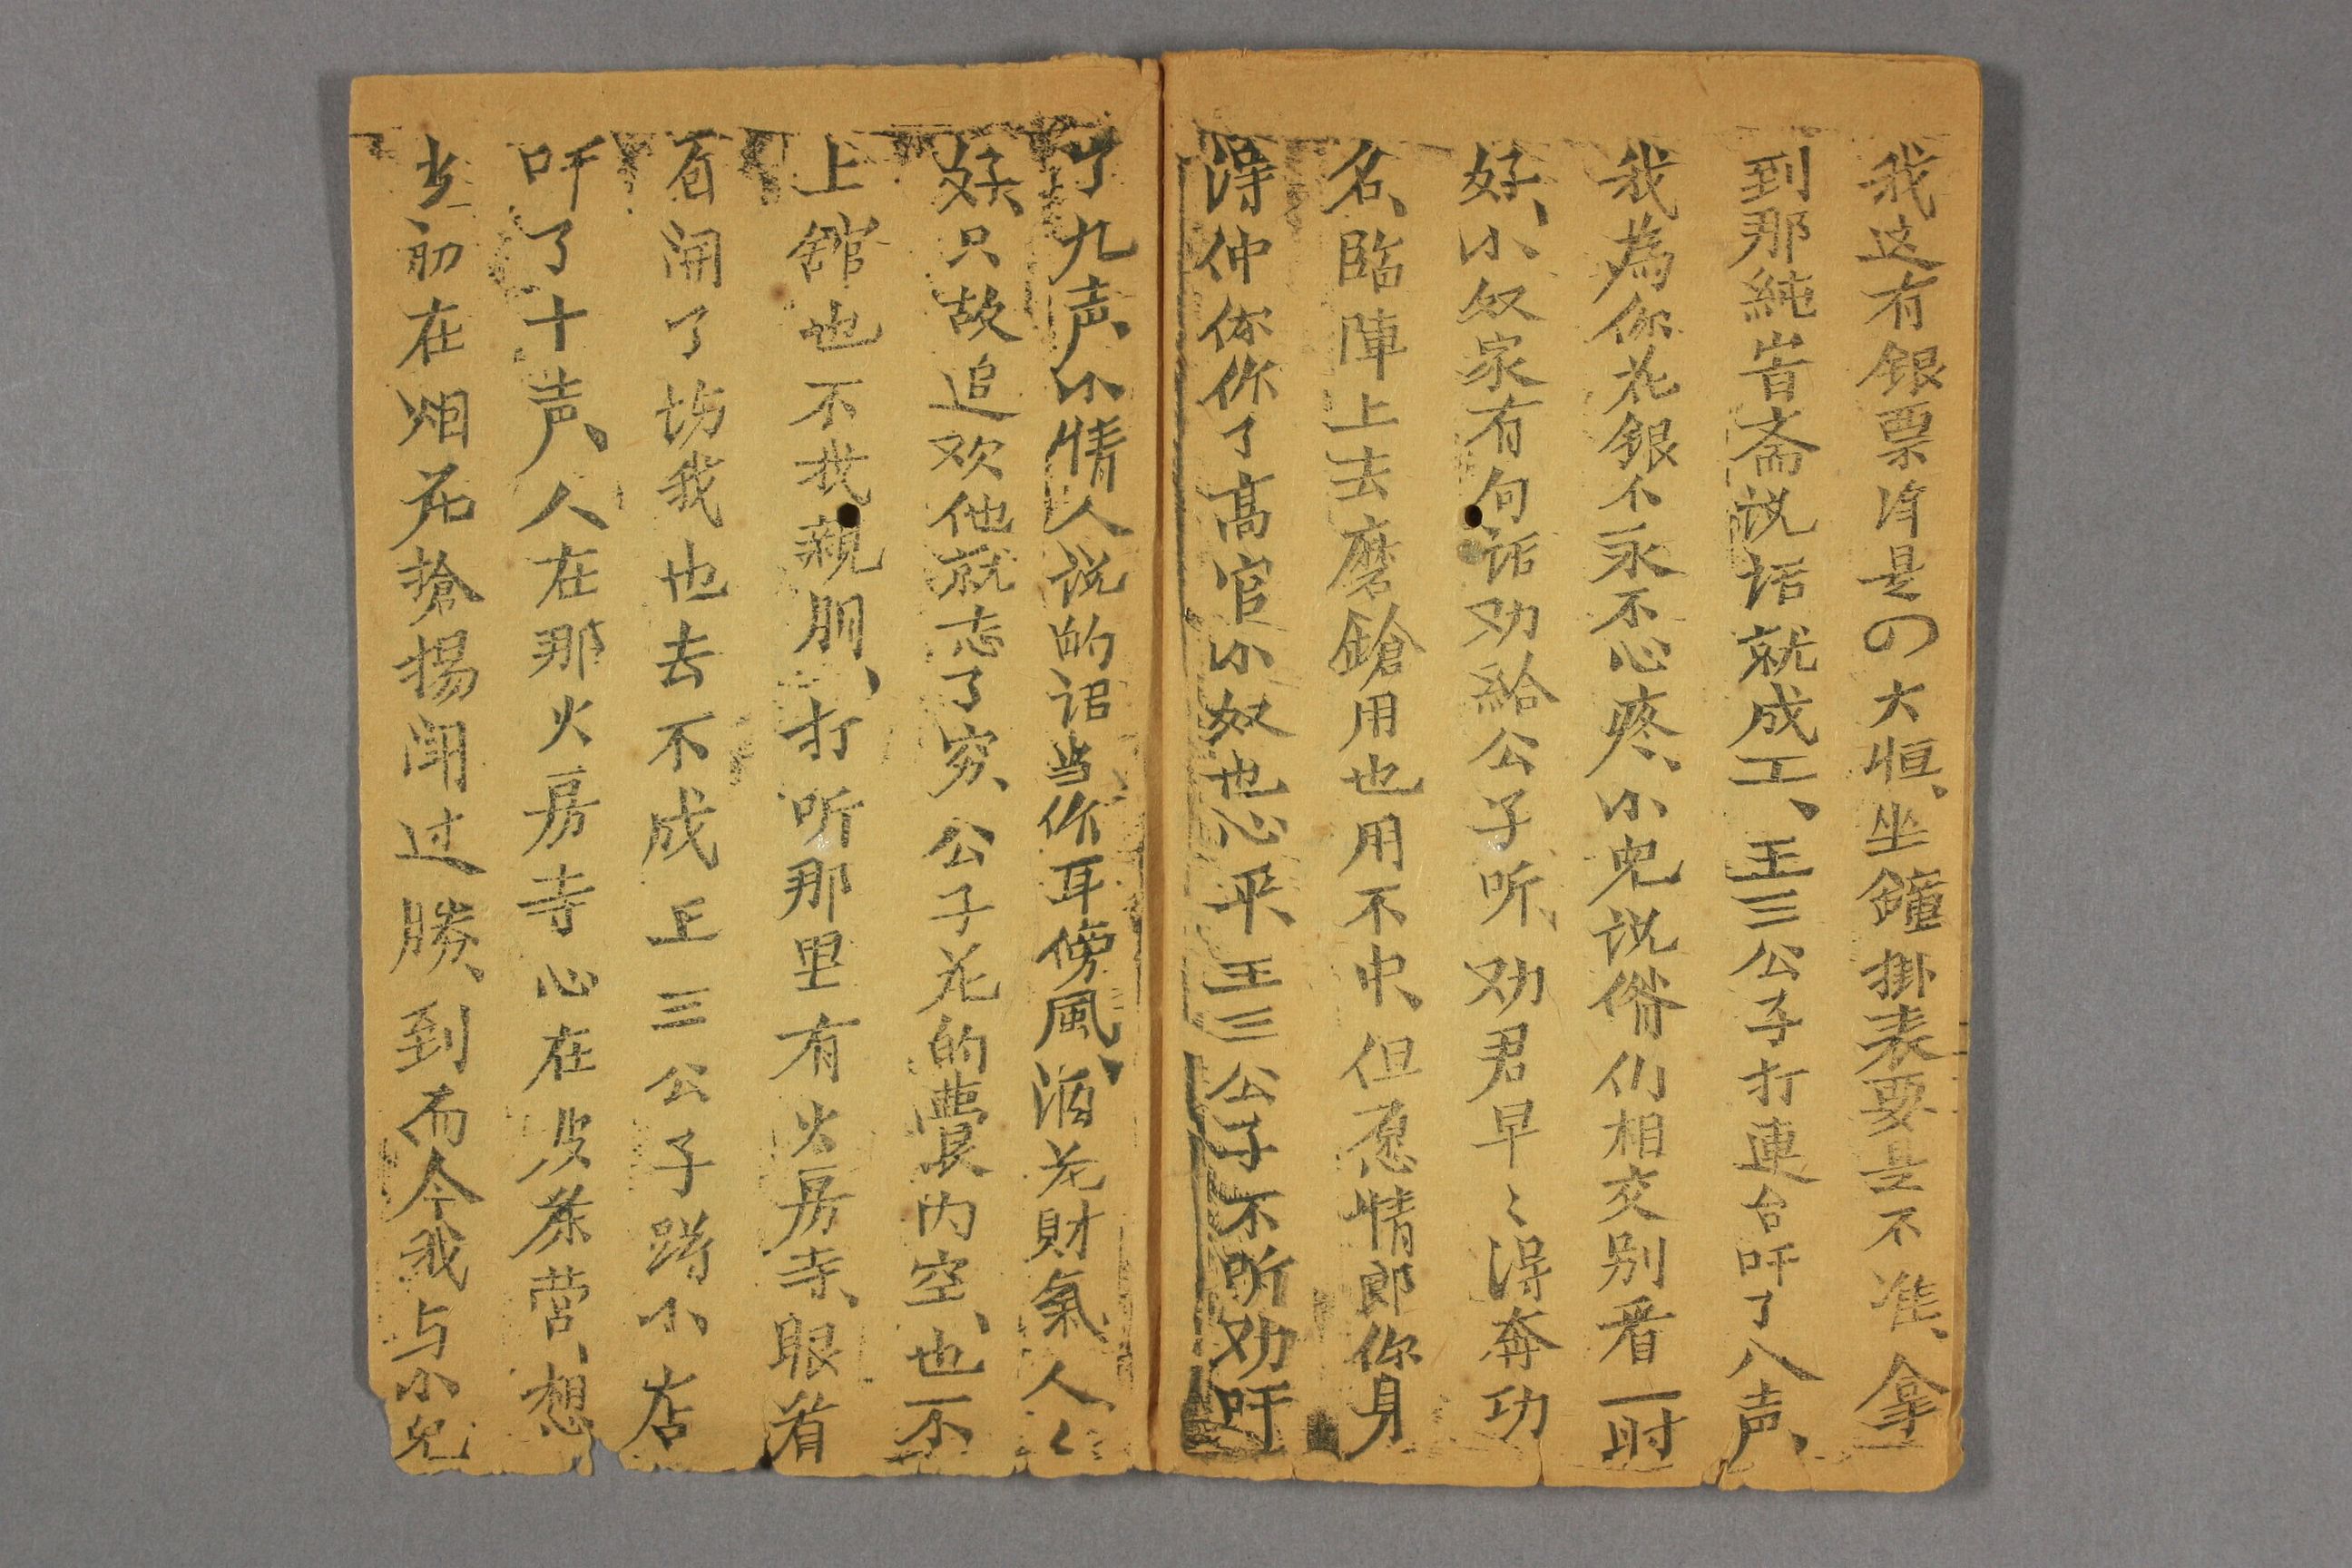 我这有銀票净是の大恒、坐鐘掛表要是不准、拿
到那純峕斋説话就成工、王三公子打連台吁了八声、
我為你花銀不永不心疼、小児说偺们相交别看一时
好、小奴家有句话劝給公子听、劝君早〻淂奔功
名、臨陣上去磨鎗用也用不中、但愿情郎你身
淂仲你你了高官小奴也心平、王三公子不听劝吁
了九声、小情人说的话当作耳傍風、酒花財氣人人
好、只故追欢他就忘了穷、公子花的囊内空、也不
上舘也不找親朋、打听那里有火房寺、眼看
看闹了坊我也去不成王三公子蹲小店
吁了十声、人在那火房寺心在皮条营、想
当初在烟花搶揚闹过勝、到而今我与小児